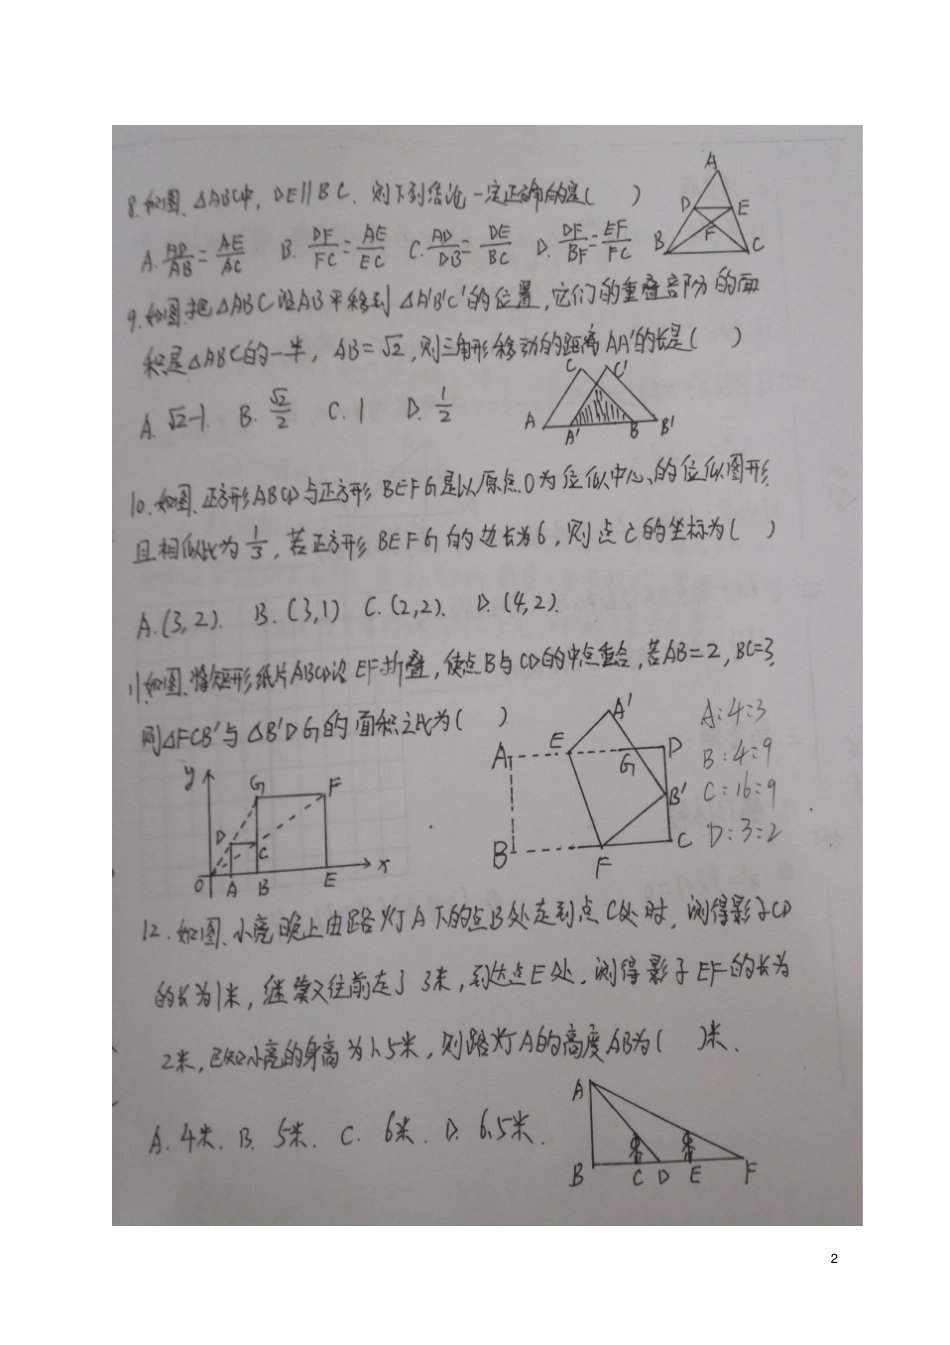 8.如图,△ABC中,DE∥BC,则下列结论一定正确的是( )
A. AD/AB=AE/AC B. DF/FC=AE/EC C. AD/DB=DE/BC D. DF/BF=EF/FC
A
D E
F
B C
9.如图,把△ABC沿AB平移到△A'B'C'的位置,它们的重叠部分的面
积是△ABC的一半,AB=√2,则三角形移动的距离AA'的长是( )
A. √2-1. B. √2/2 C. 1 D. 1/2
C C'
A A' B B'
10.如图,正方形ABCD与正方形BEFG是以原点O为位似中心的位似图形,
且相似比为1/3,若正方形BEFG的边长为6,则点C的坐标为( )
A.(3,2). B.(3,1) C.(2,2). D.(4,2).
11.如图,将矩形纸片ABCD沿EF折叠,使点B与CD的中点重合,若AB=2,BC=3,
则△FCB'与△B'DG的面积之比为( )
A:4:3
B:4:9
C:16:9
D:3:2
y G F
D C
O A B E x
A E A' D
G
B'
B F C
12.如图,小亮晚上由路灯A下的点B处走到点C处时,测得影子CD
的长为1米,继续又往前走了3米,到达点E处,测得影子EF的长为
2米,已知小亮的身高为1.5米,则路灯A的高度AB为( )米.
A. 4米. B. 5米. C. 6米. D. 6.5米.
A
B C D E F
2